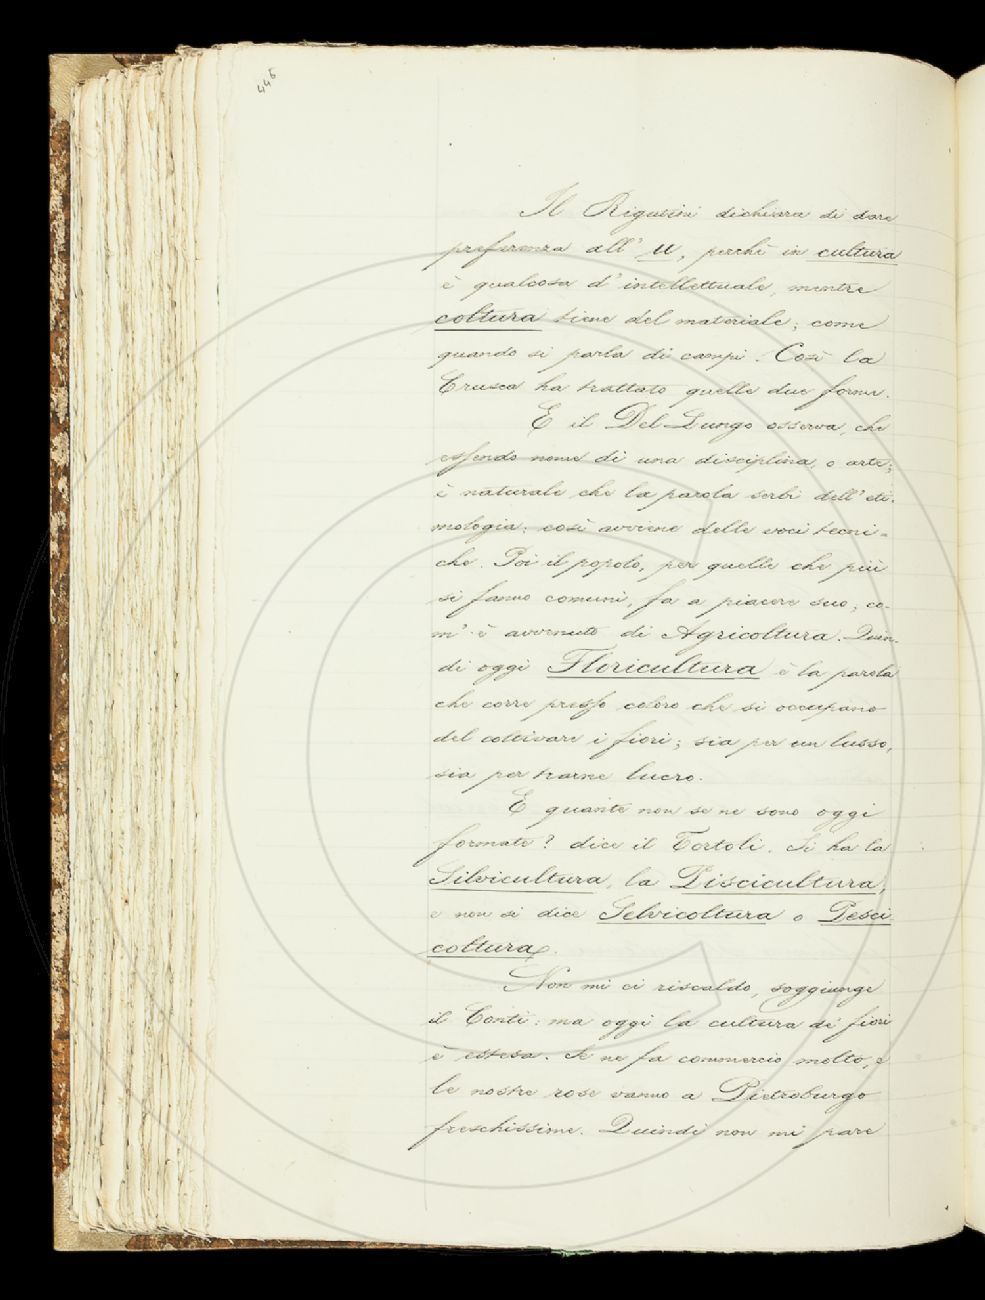 446
Il Rigutini dichiara di dare
preferenza all' u, perchè in cultura
è qualcosa d' intellettuale, mentre
coltura tiene del materiale; come
quando si parla di campi. Così la
Crusca ha trattato quelle due forme.
E il Del Lungo osserva, che
essendo nome di una disciplina, o arte,
è naturale che la parola serbi dell' eti-
mologia: così avviene delle voci tecni-
che. Poi il popolo, per quelle che più
si fanno comuni, fa a piacere suo; co-
m' è avvenuto di Agricoltura. Quin-
di oggi Floricultura è la parola
che corre presso coloro che si occupano
del coltivare i fiori; sia per un lusso,
sia per trarne lucro.
E quante non se ne sono oggi
formate? dice il Tortoli. Si ha la
Silvicultura, la Piscicultura,
e non si dice Selvicoltura o Pesci
coltura.
Non mi ci riscaldo, soggiunge
il Conti: ma oggi la cultura de' fiori
è estesa. Se ne fa commercio molto, e
le nostre rose vanno a Pietroburgo
freschissime. Quindi non mi pare